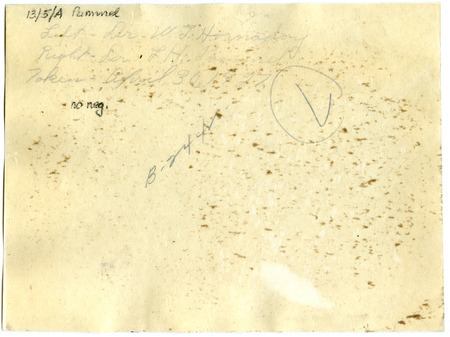 13/5/A Pammel
Left - Dr. W. T. Hornaday
Right - Dr. L. H.
Taken - April 3
no neg.
V
B-2442